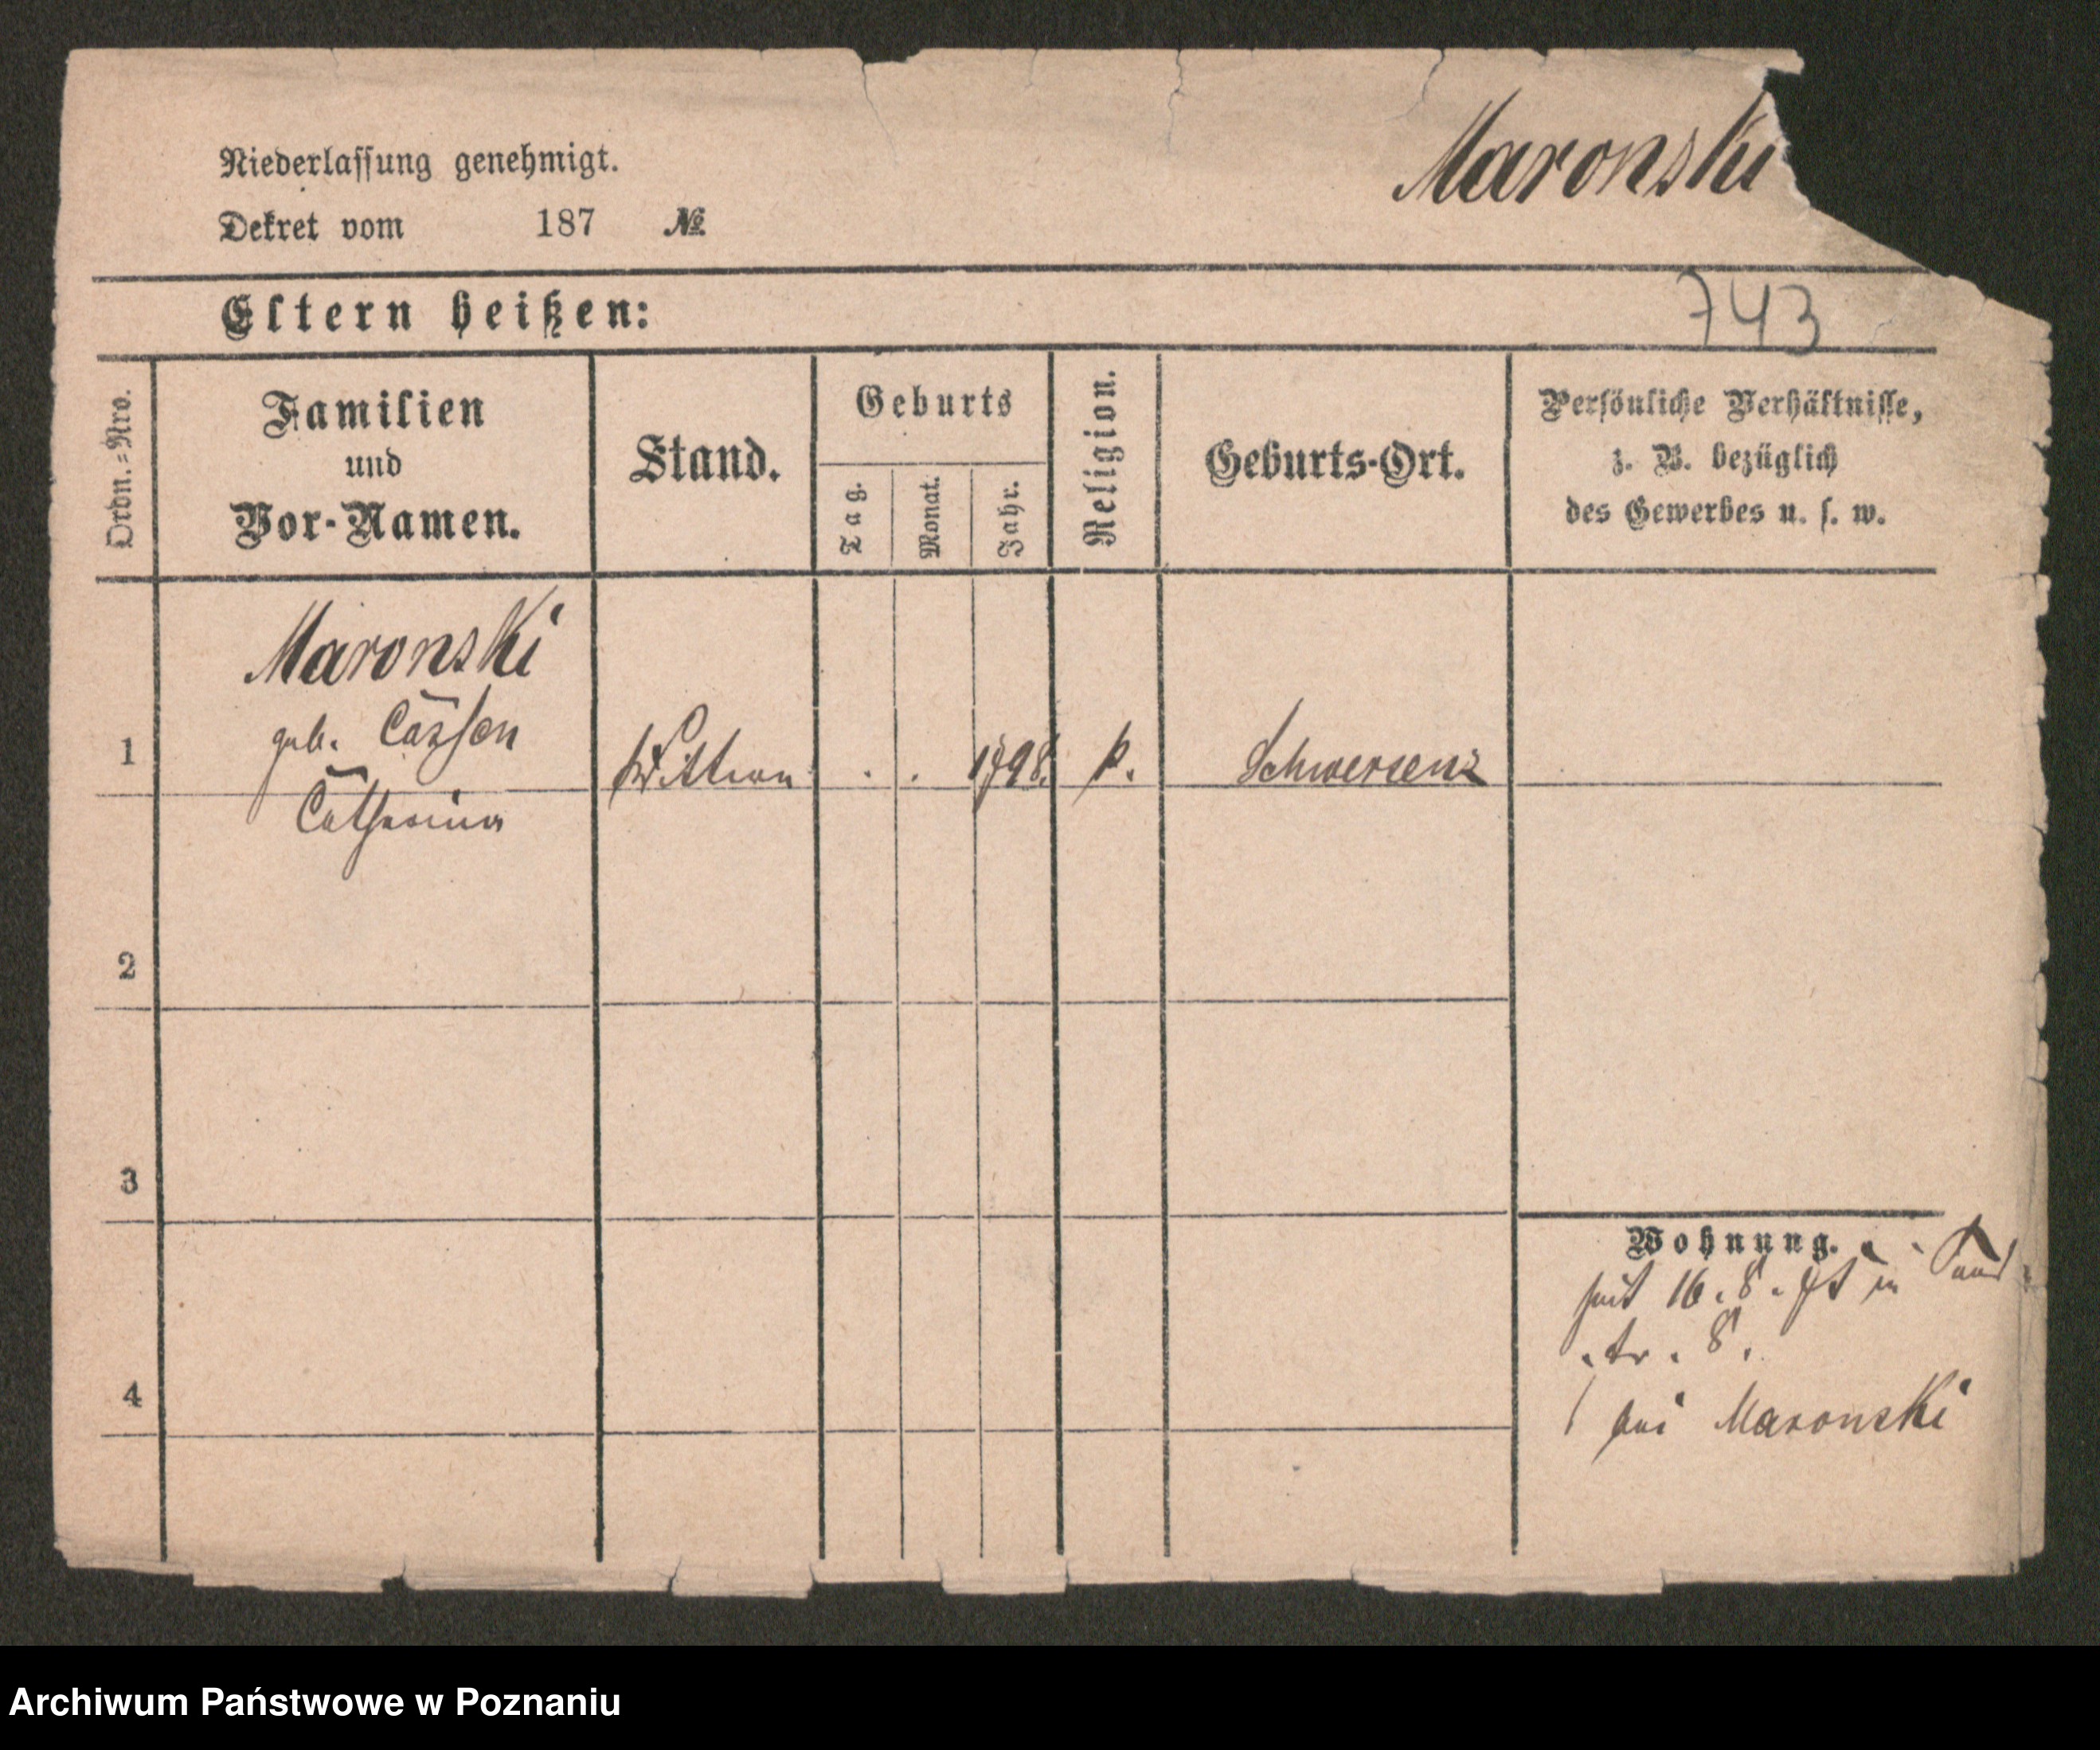 Maronski
Niederlassung genehmigt.
Dekret vom 187 №
743
Eltern heißen:
Ordn.=Nro.
Familien
und
Vor-Namen.
Stand.
Geburts
Tag.
Monat.
Jahr.
Religion.
Geburts-Ort.
Persönliche Verhältnisse,
z. B. bezüglich
des Gewerbes u. s. w.
Maronski
geb.
1 Wittwe . . 1798. k. Schwersenz
Catharina
2
3
4
Wohnung.
seit 16. 8.
str. 8.
bei Maronski
Archiwum Państwowe w Poznaniu